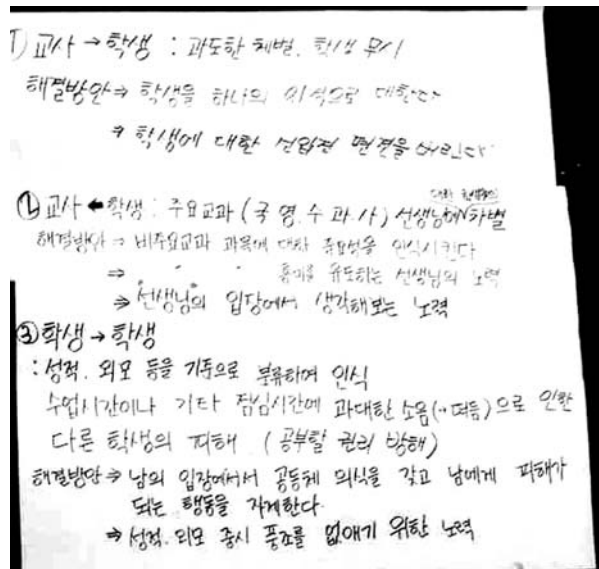 1) 교사 → 학생 : 과도한 체벌. 학생 무시
해결방안 ⇒ 학생을 하나의 인식으로 대한다
⇒ 학생에 대한 선입견 편견을 버린다
② 교사 ← 학생 : 주요교과 (국.영.수.과.사) 선생님에 대한 학생들의 차별
해결방안 ⇒ 비주요교과 과목에 대한 중요성을 인식시킨다
⇒ " " 흥미를 유도하는 선생님의 노력
⇒ "선생님"의 입장에서 생각해보는 노력
③ 학생 → 학생
: 성적. 외모 등을 기준으로 분류하여 인식
수업시간이나 기타 점심시간에 과대한 소음(→떠듬)으로 인한
다른 학생의 피해 (공부할 권리 방해)
해결방안 ⇒ 남의 입장에서서 공동체 의식을 갖고 남에게 피해가
되는 행동을 자제한다.
⇒ 성적. 외모 중시 풍조를 없애기 위한 노력